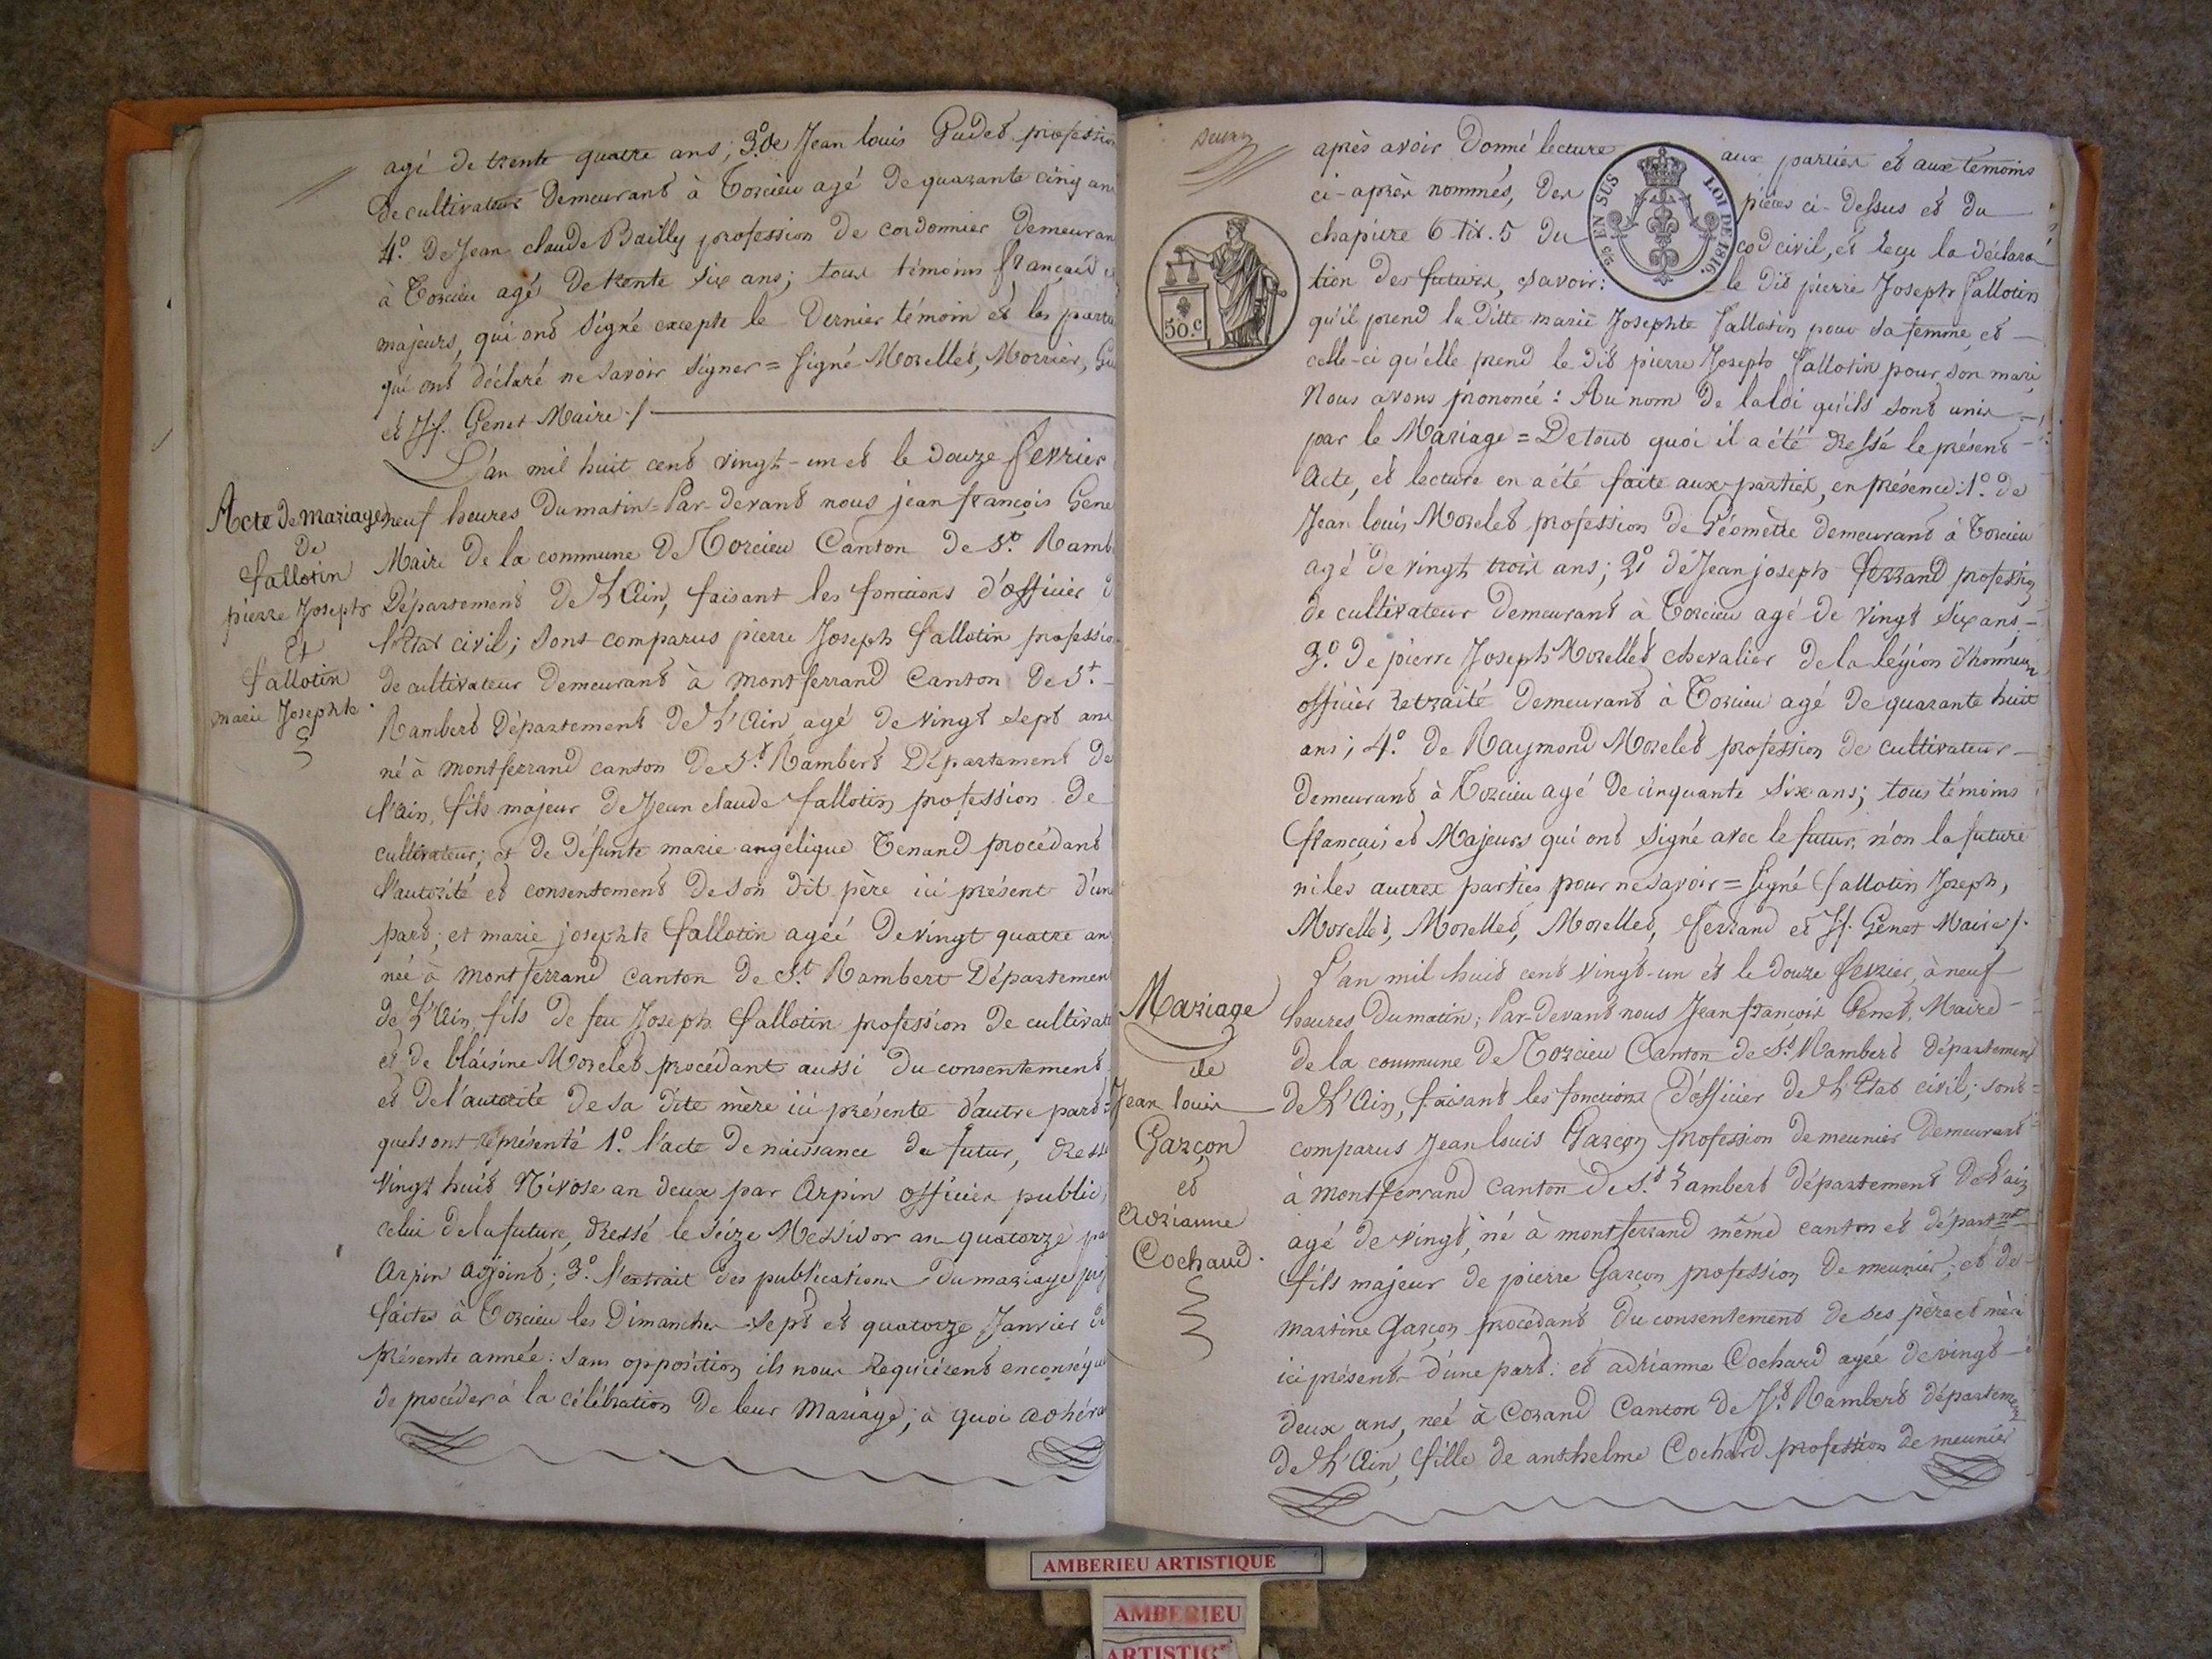 agé de trente quatre ans; 3.º de Jean louis Gudet profession
de cultivateur demeurant à Torcieu agé de quarante cinq ans
4.º de Jean claude Bailly profession de cordonnier demeurant
à Torcieu agé de trente six ans; tous témoins français et
majeurs, qui ont signé excepte le dernier témoin et les parties
qui ont déclaré ne savoir signer = signé Morellet, Morrier,
et Jf. Genet Maire ./.
L'an mil huit cent vingt-un et le douze fevrier
Acte de mariage
de
fallotin
pierre Joseph
Et
fallotin
marie Josephte
neuf heures du matin = Par-devant nous jean françois Genet
Maire de la commune de Torcieu Canton de St. Ramb
Département de L'Ain, faisant les fonctions d'officier d
l'Etat civil; sont comparus pierre Joseph fallotin profession
de cultivateur demeurant à montferrand Canton de St.
Rambert Département de L'Ain agé de vingt sept ans
né à montferrand canton de St. Rambert Département de
l'ain, fils majeur de Jean claude fallotin profession de
cultivateur; et de défunte marie angélique Tenand procédant
l'autorité et consentement de son dit père ici présent d'une
part; et marie josephte fallotin agéé de vingt quatre an
neé à montferrand canton de St. Rambert Département
de L'Ain, fils de feu Joseph fallotin profession de cultivate
et de blaisine Morelet procédant aussi du consentement
et de l'autorité de sa dite mère ici présente d'autre part =
quels ont représenté 1.º l'acte de naissance du futur, dressé
vingt huit Nivose an deux par Arpin officier public,
celui de la future, dressé le seize Messidor an quatorze pa
Arpin adjoint; 3.º l'extrait des publications du mariage proj
faites à Torcieu les Dimanches sept et quatorze Janvier d
présente année: sans opposition ils nous requièrent en conséque
de procéder à la célébration de leur Mariage; à quoi adhéra
après avoir donné lecture aux parties et aux témoins
ci-après nommés, des pièces ci-dessus et du
chapitre 6 tit. 5 du cod civil, et reçu la déclara
tion des futurs, savoir: le dit pierre Joseph fallotin
EN SUS LOI DE 1816.
50.c
qu'il prend la ditte marie Josephte fallotin pour sa femme, et
celle-ci qu'elle prend le dit pierre Joseph fallotin pour son mari
Nous avons prononcé: Au nom de la loi qu'ils sont unis
par le Mariage = De tout quoi il a été dressé le présent
Acte, et lecture en a été faite aux parties, en présence: 1.º de
Jean louis Morelet profession de Géomètre demeurant à Torcieu
agé de vingt trois ans; 2.º de Jean joseph ferrand profession
de cultivateur demeurant à Torcieu agé de vingt six ans
3.º de pierre Joseph Morellet chevalier de la légion d'honneur
officier retraité demeurant à Torcieu agé de quarante huit
ans; 4.º de Raymond Morelet profession de cultivateur
demeurant à Torcieu agé de cinquante six ans; tous témoins
français et Majeurs qui ont signé avec le futur, n'on la future
ni les autres parties pour ne savoir = signé fallotin Joseph,
Morellet, Morellet, Morellet, ferrand et Jf. Genet Maire ./.
L'an mil huit cent vingt-un et le douze fevrier, à neuf
Mariage
de
Jean louis
Garçon
et
Adrianne
Cochaud.
heures du matin; Par-devant nous Jean françois Genet, Maire
de la commune de Torcieu Canton de St. Rambert département
de L'Ain, faisant les fonctions d'officier de L'Etat civil; sont
comparus Jean louis Garçon profession de meunier demeurant
à montferrand canton de St. rambert département de L'ain
agé de vingt, né à montferrand même canton et départmt
fils majeur de pierre Garçon profession de meunier, et de
martine Garçon procédant du consentement de ses père et mère
ici présents d'une part: et adrianne Cochard agéé de vingt
deux ans, neé à Corand Canton de St. Rambert département
de L'Ain, fille de anthelme Cochard profession de meunier
AMBERIEU ARTISTIQUE
AMBERIEU